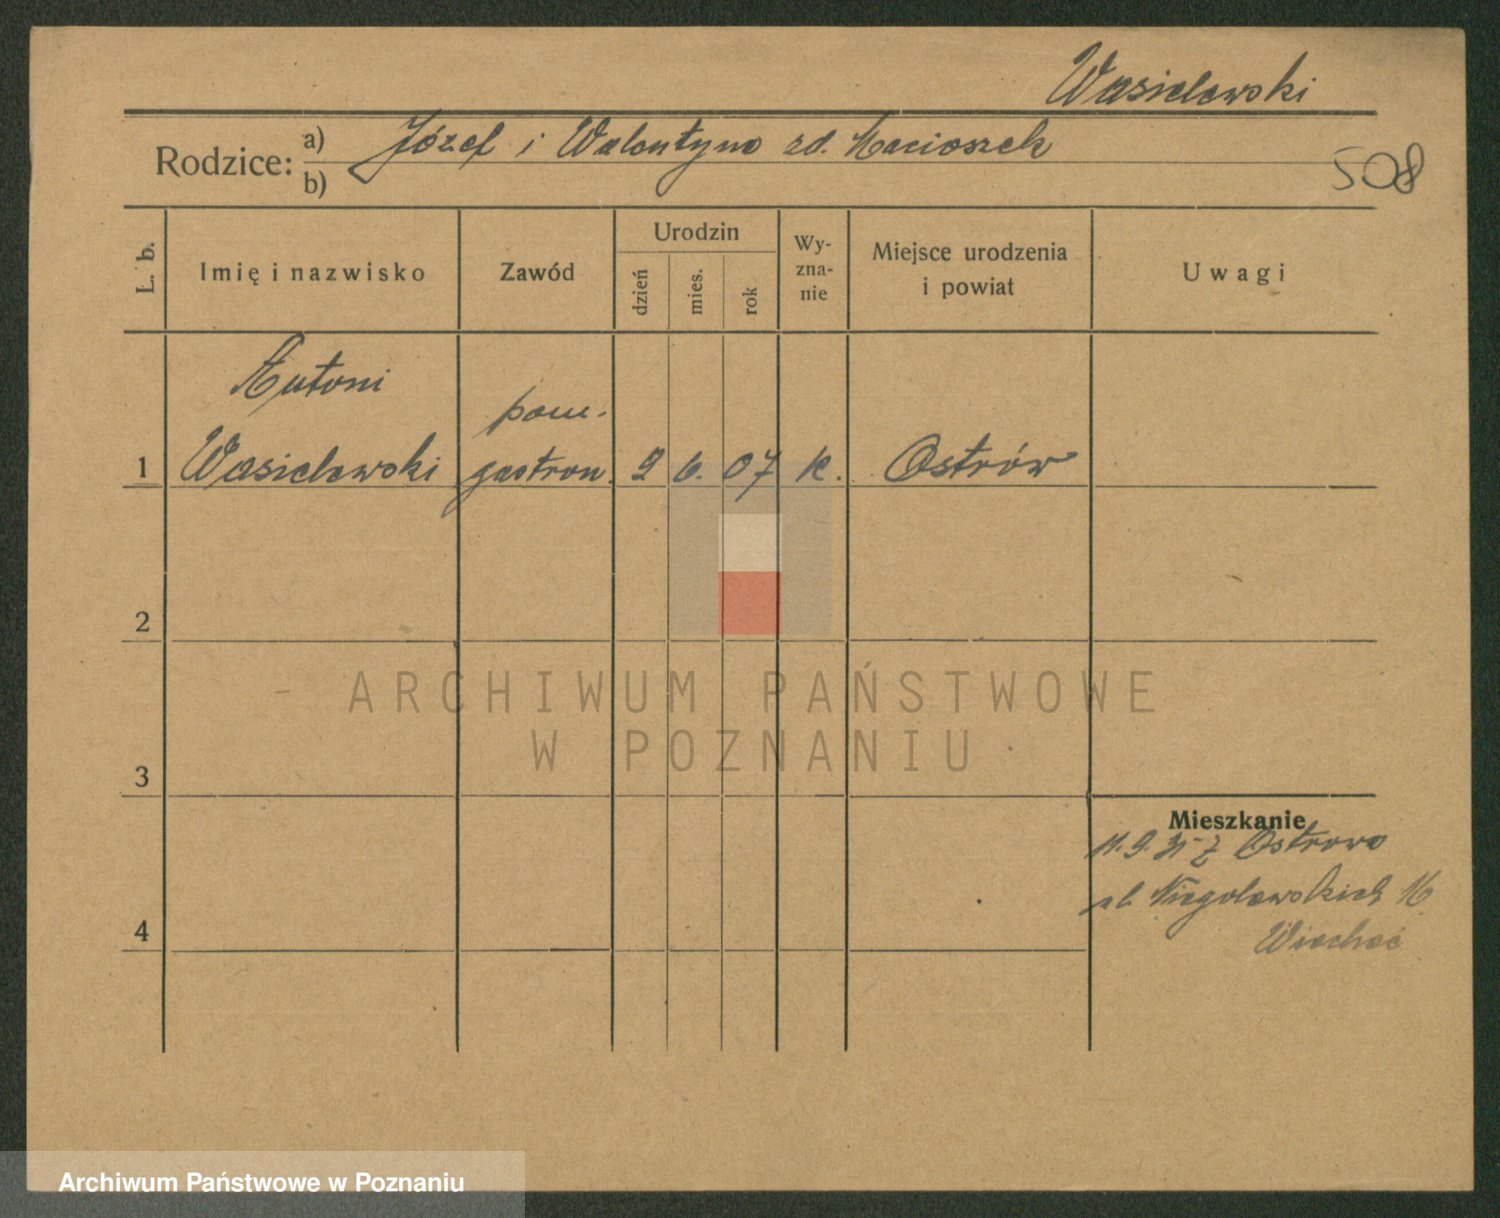 Wasielewski
Rodzice: a) Józef i Walentyna zd. Macioszek
b)
508
L. b.
Imię i nazwisko
Zawód
Urodzin
dzień
mies.
rok
Wy-
zna-
nie
Miejsce urodzenia
i powiat
Uwagi
Antoni
pom.
1 Wasielewski gastron. 9 6. 07 k. Ostrów
2
ARCHIWUM PAŃSTWOWE
W POZNANIU
3
Mieszkanie
11.9.31 z Ostrowa
ul. Niegolewskich 16
4
Archiwum Państwowe w Poznaniu